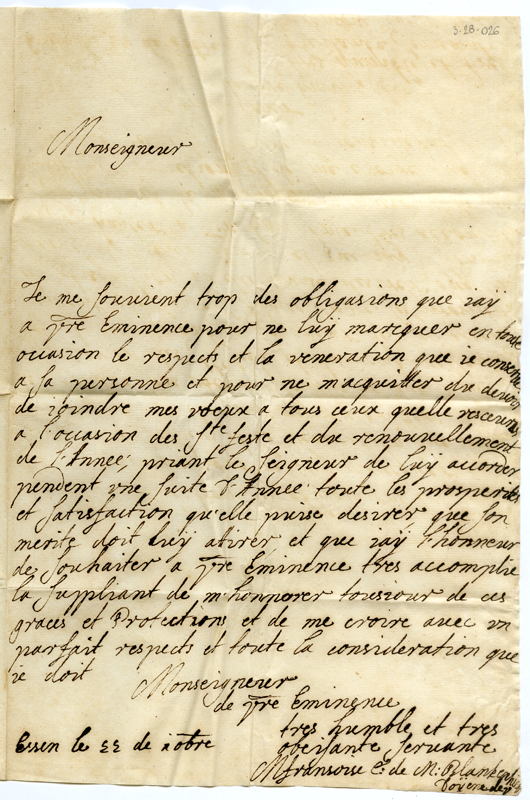 3-1B-026
Monseigneur
Je me souvient trop des obligasions que iay
a vre Eminence pour ne luy marquer en toute
occasion le respects et la veneration que ie conserve
a sa personne et pour ne m'acquitter du devoir
de ioindre mes voeux a tous ceux quelle rescevra
a l'occasion des Ste feste et du renouvellement
de l'Annee, priant le Seigneur de luy accorder
pendent vne suite d'Annee toute les prosperites
et satisfaction qu'elle puise desirer que son
merite doit luy atirer et que iay l'honneur
de souhaiter a vre Eminence tres accomplie
la suppliant de m'honnorer tousiour de ces
graces et Protections et de me croire avec vn
parfait respects et toute la consideration que
ie doit
Monseigneur
de vre Eminence
tres humble et tres
obeisante servante
Essen le 22 de xobre
M fransoise E: de M: